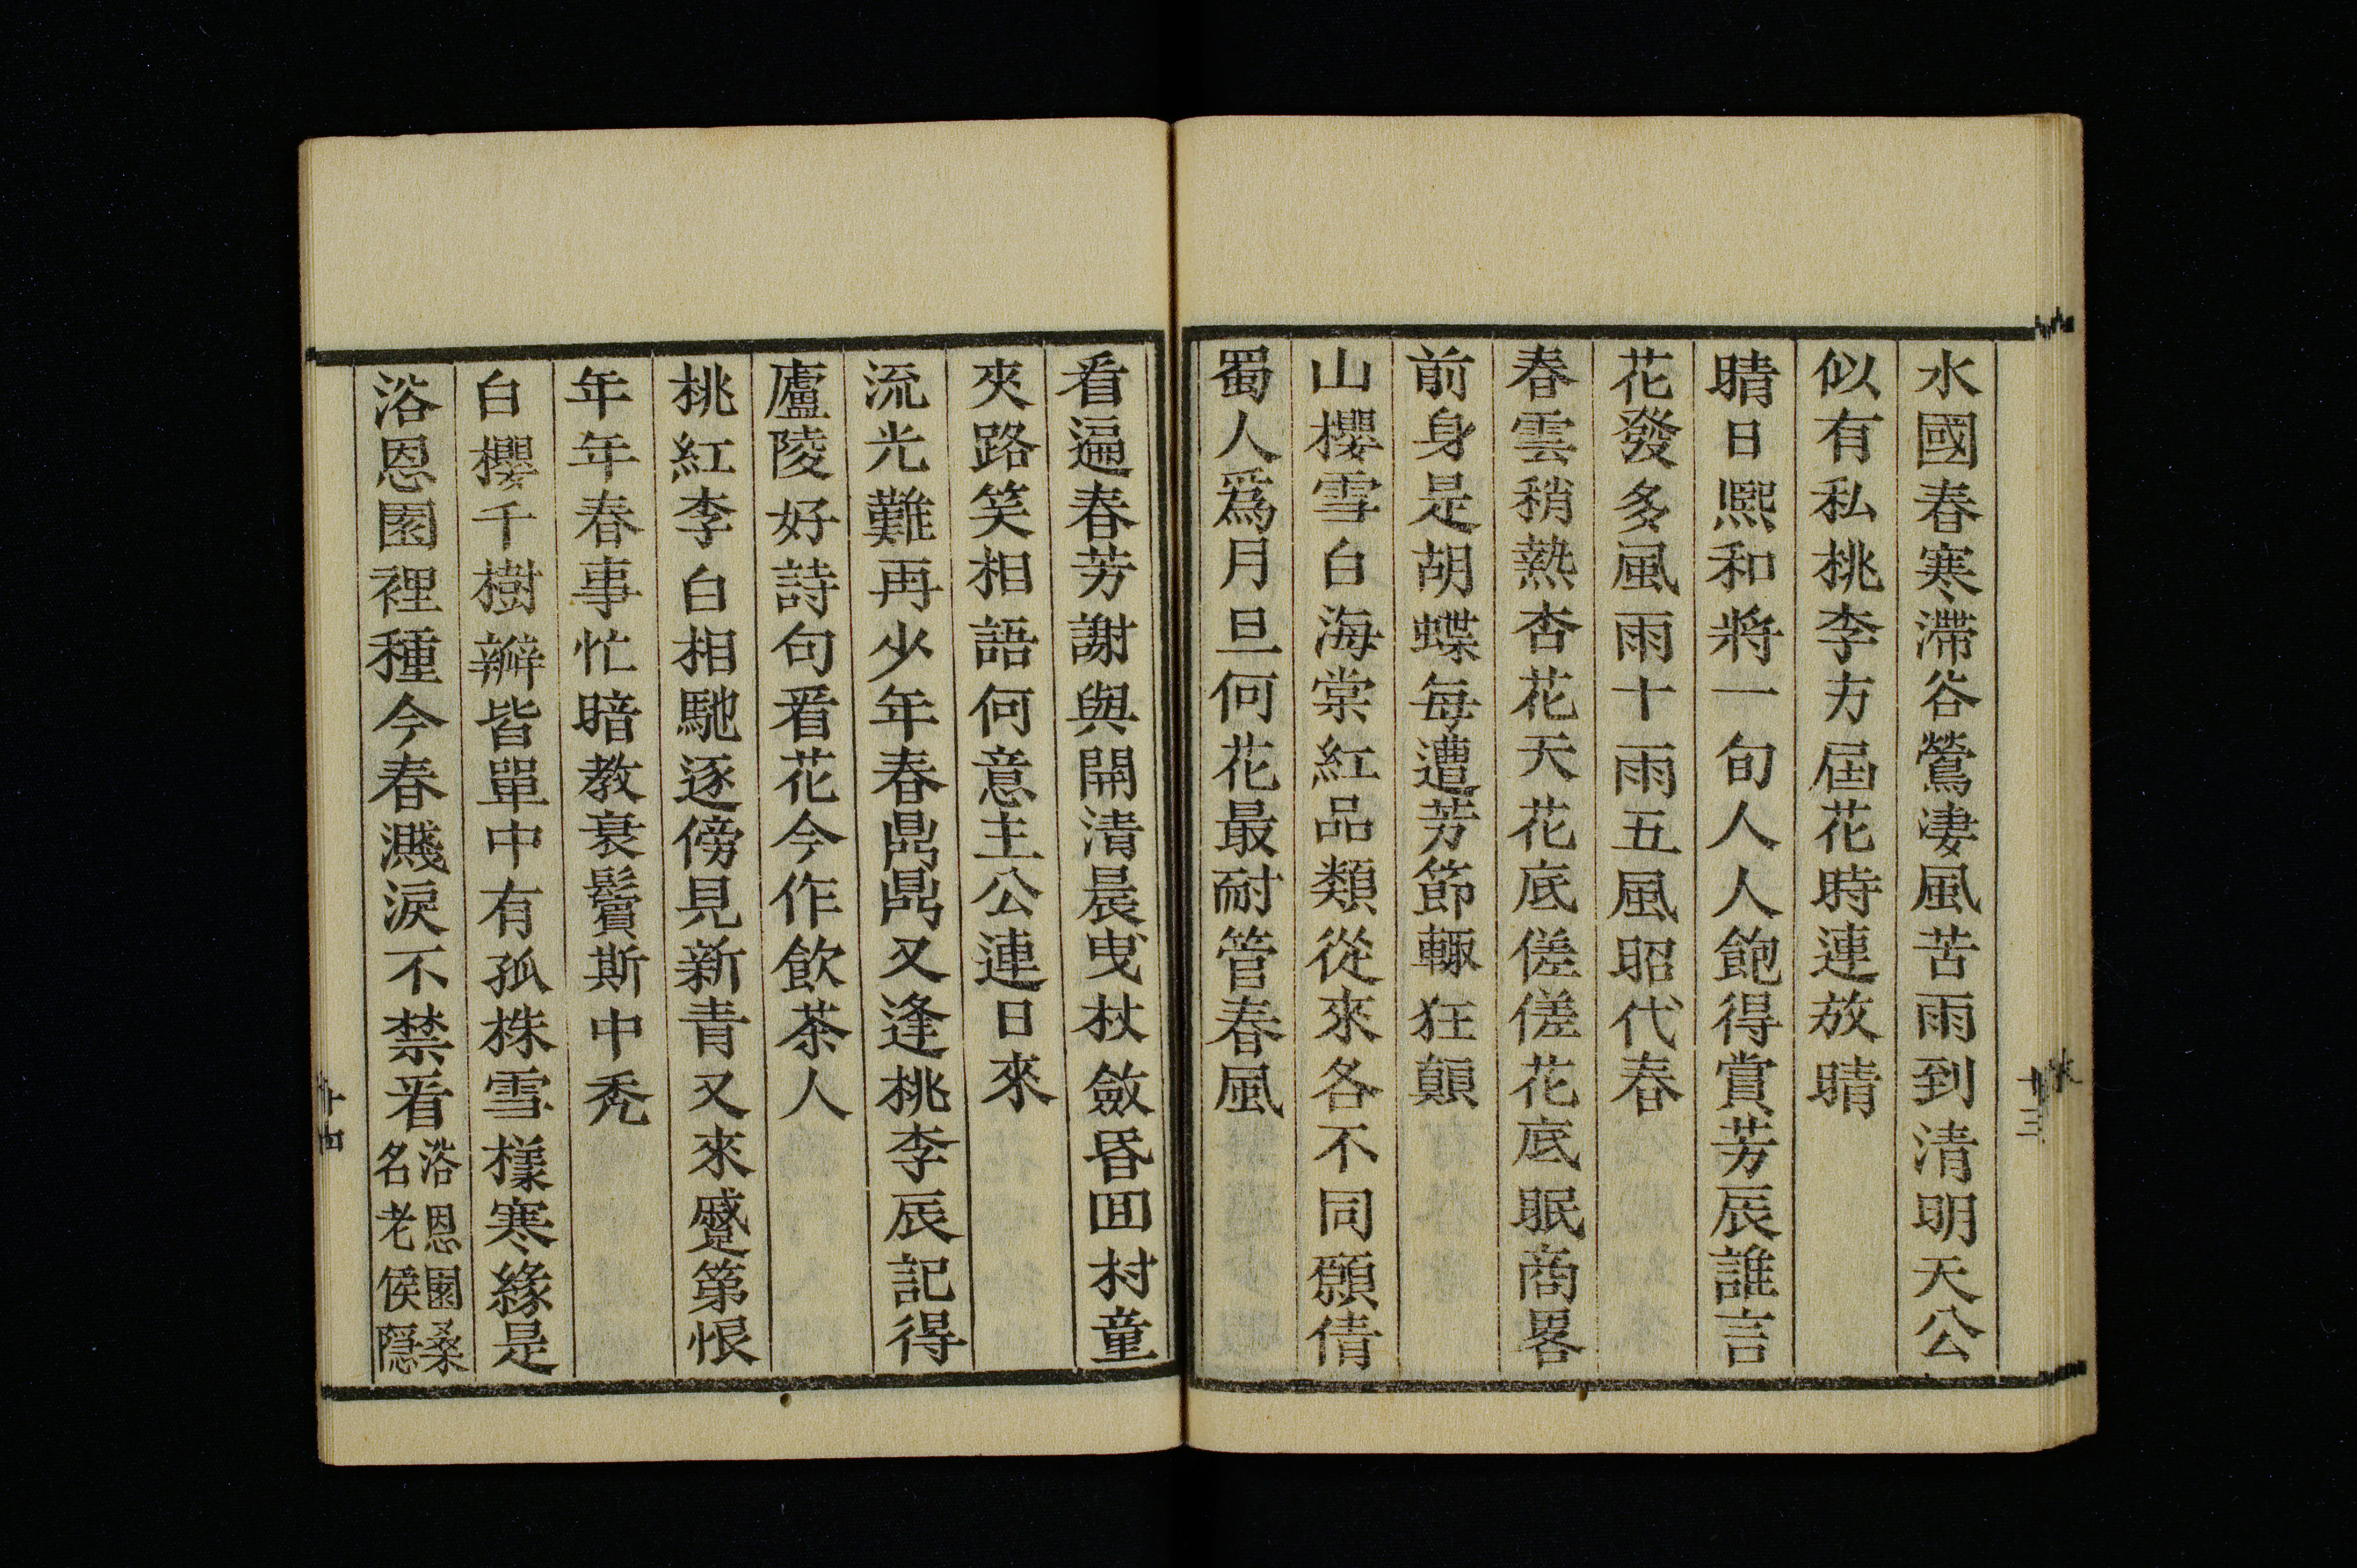 水國春寒滯谷鶯凄風苦雨到清明天公
似有私桃李方屆花時連放晴
晴日熈和將一句人人飽得賞芳辰誰言
花發多風雨十雨五風昭代春
春雲稍熱杏花天花底傞傞花底眠商畧
前身是胡蝶每遭芳節輙狂顛
山櫻雪白海棠紅品類從來各不同願倩
蜀人爲月旦何花最耐管春風
十三
看遍春芳謝與開清晨曳杖斂昏回村童
夾路笑相語何意主公連日來
流光難再少年春鼎鼎又逢桃李辰記得
廬陵好詩句看花今作飲茶人
桃紅李白相馳逐傍見新青又來蹙第恨
年年春事忙暗教衰鬢斯中禿
白櫻千樹瓣皆單中有孤株雪樣寒緣是
浴恩園裡種今春濺淚不禁看浴恩園桑
名老侯隱
十四